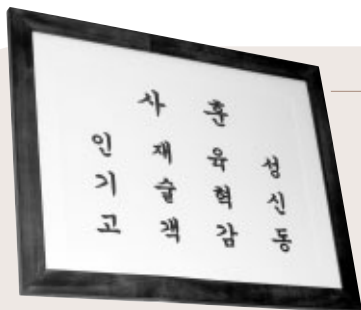 사 훈
인 재 육 성
기 술 혁 신
고 객 감 동